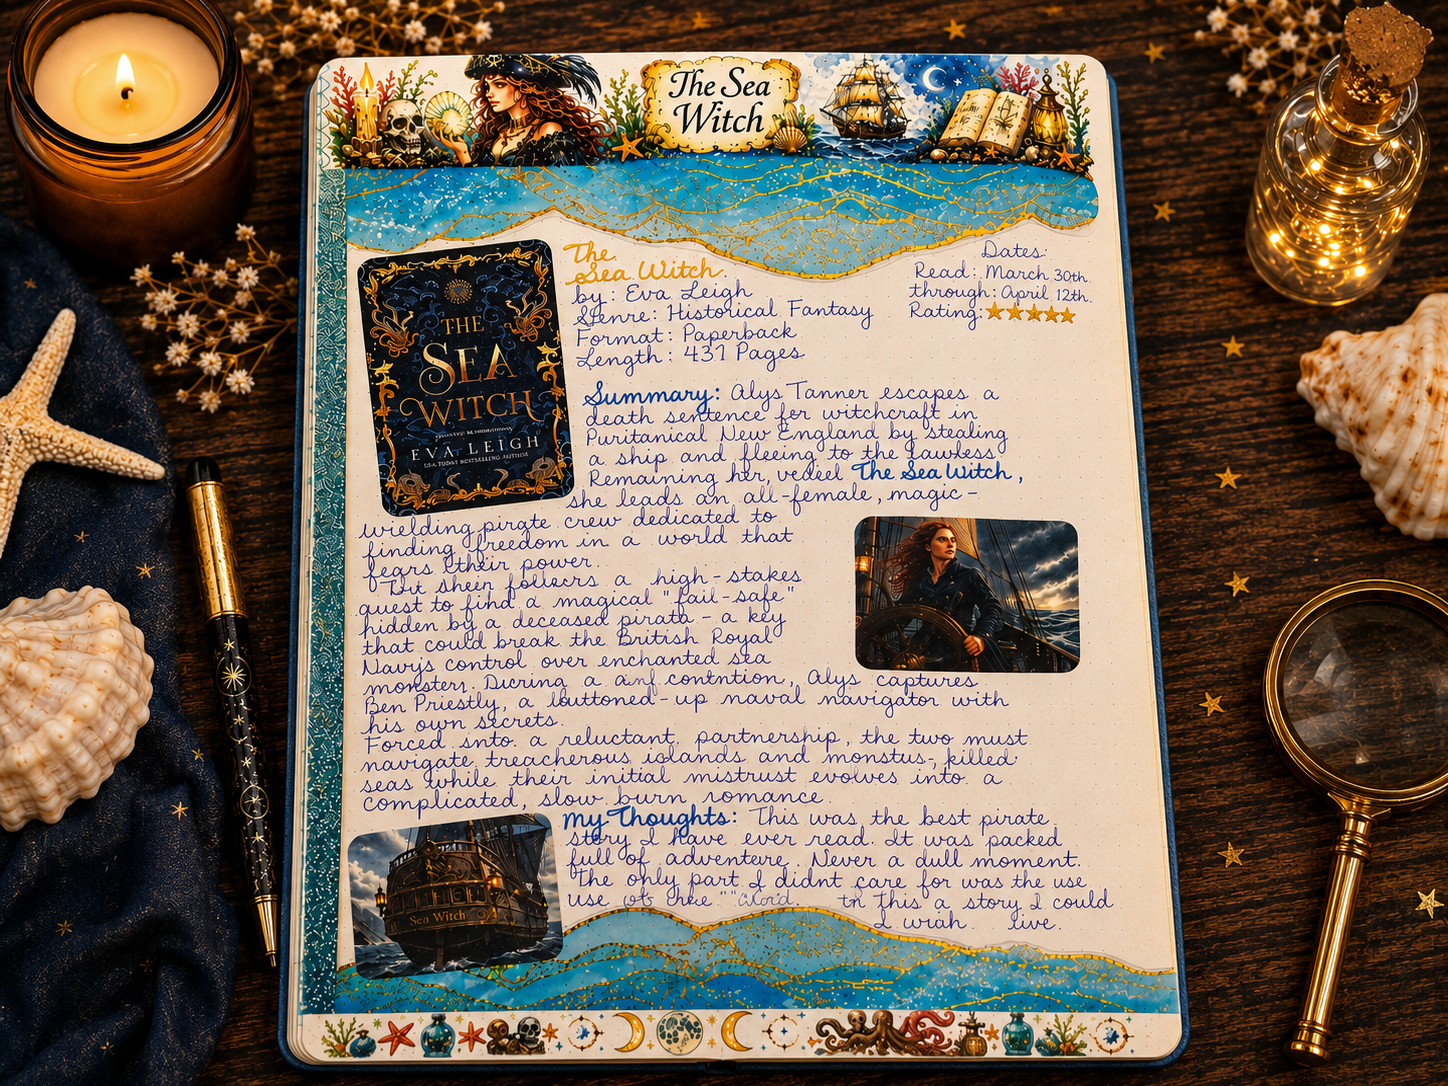 The Sea
Witch
THE
SEA
WITCH
EVA LEIGH
USA TODAY BESTSELLING AUTHOR
The
Sea Witch
by: Eva Leigh
Genre: Historical Fantasy
Format: Paperback
Length: 437 Pages
Dates:
Read: March 30th
through: April 12th.
Rating: ★★★★★
Summary: Alys Tanner escapes a
death sentence for witchcraft in
Puritanical New England by stealing
a ship and fleeing to the lawless
Remaining her, The Sea Witch,
she leads an all-female, magic-
wielding pirate crew dedicated to
finding freedom in a world that
fears their power.
a high-stakes
quest to find a magical "fail-safe"
hidden by a deceased pirate - a key
that could break the British Royal
Navy's control over enchanted sea
a contention, Alys captures
Ben Priestly, a buttoned-up naval navigator with
his own secrets.
Forced into a reluctant partnership, the two must
navigate treacherous islands and killed
seas while their initial mistrust evolves into a
complicated, slow burn romance.
My Thoughts: This was the best pirate
story I have ever read. It was packed
full of adventure. Never a dull moment.
The only part I didnt care for was the use
use In this a story I could
I wish live.
Sea Witch